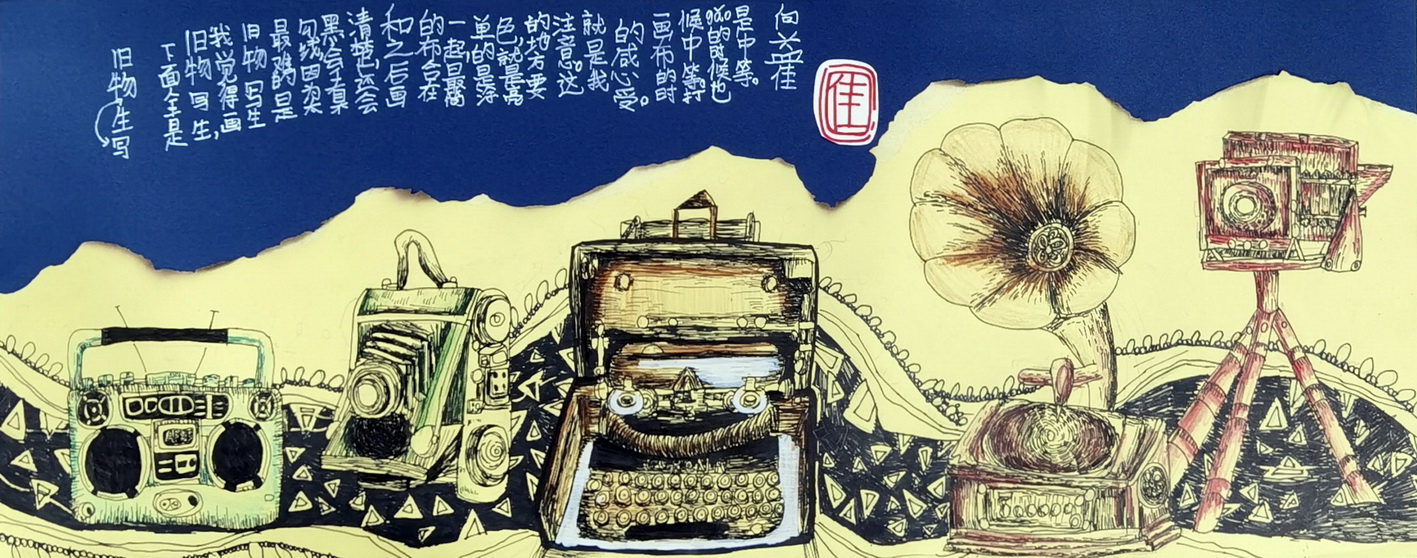 旧物生写
下面全是
旧物写生,
我觉得画
旧物写生
最难的是
勾线因为
黑会看
清楚还会
和之后画
的布合在
一起最
单的是深
色,就是高
的地方要
注意。这
就是我
的感受。
画布的时
候中等打
的时候也
是中等。
向益佳
佳